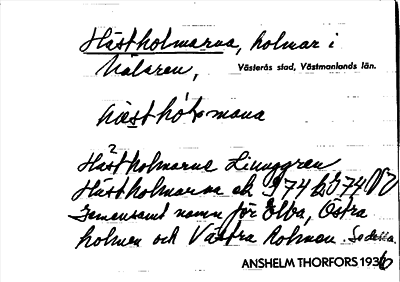 Hästholmarna, holmar i
Mälaren,
Västerås stad, Västmanlands län.
Hästholmarne Linnggren
Hästholmarna ek J 74
Gemensamt namn för Elba, Östra
holmen och Västra holmen. Se dessa.
ANSHELM THORFORS 1936